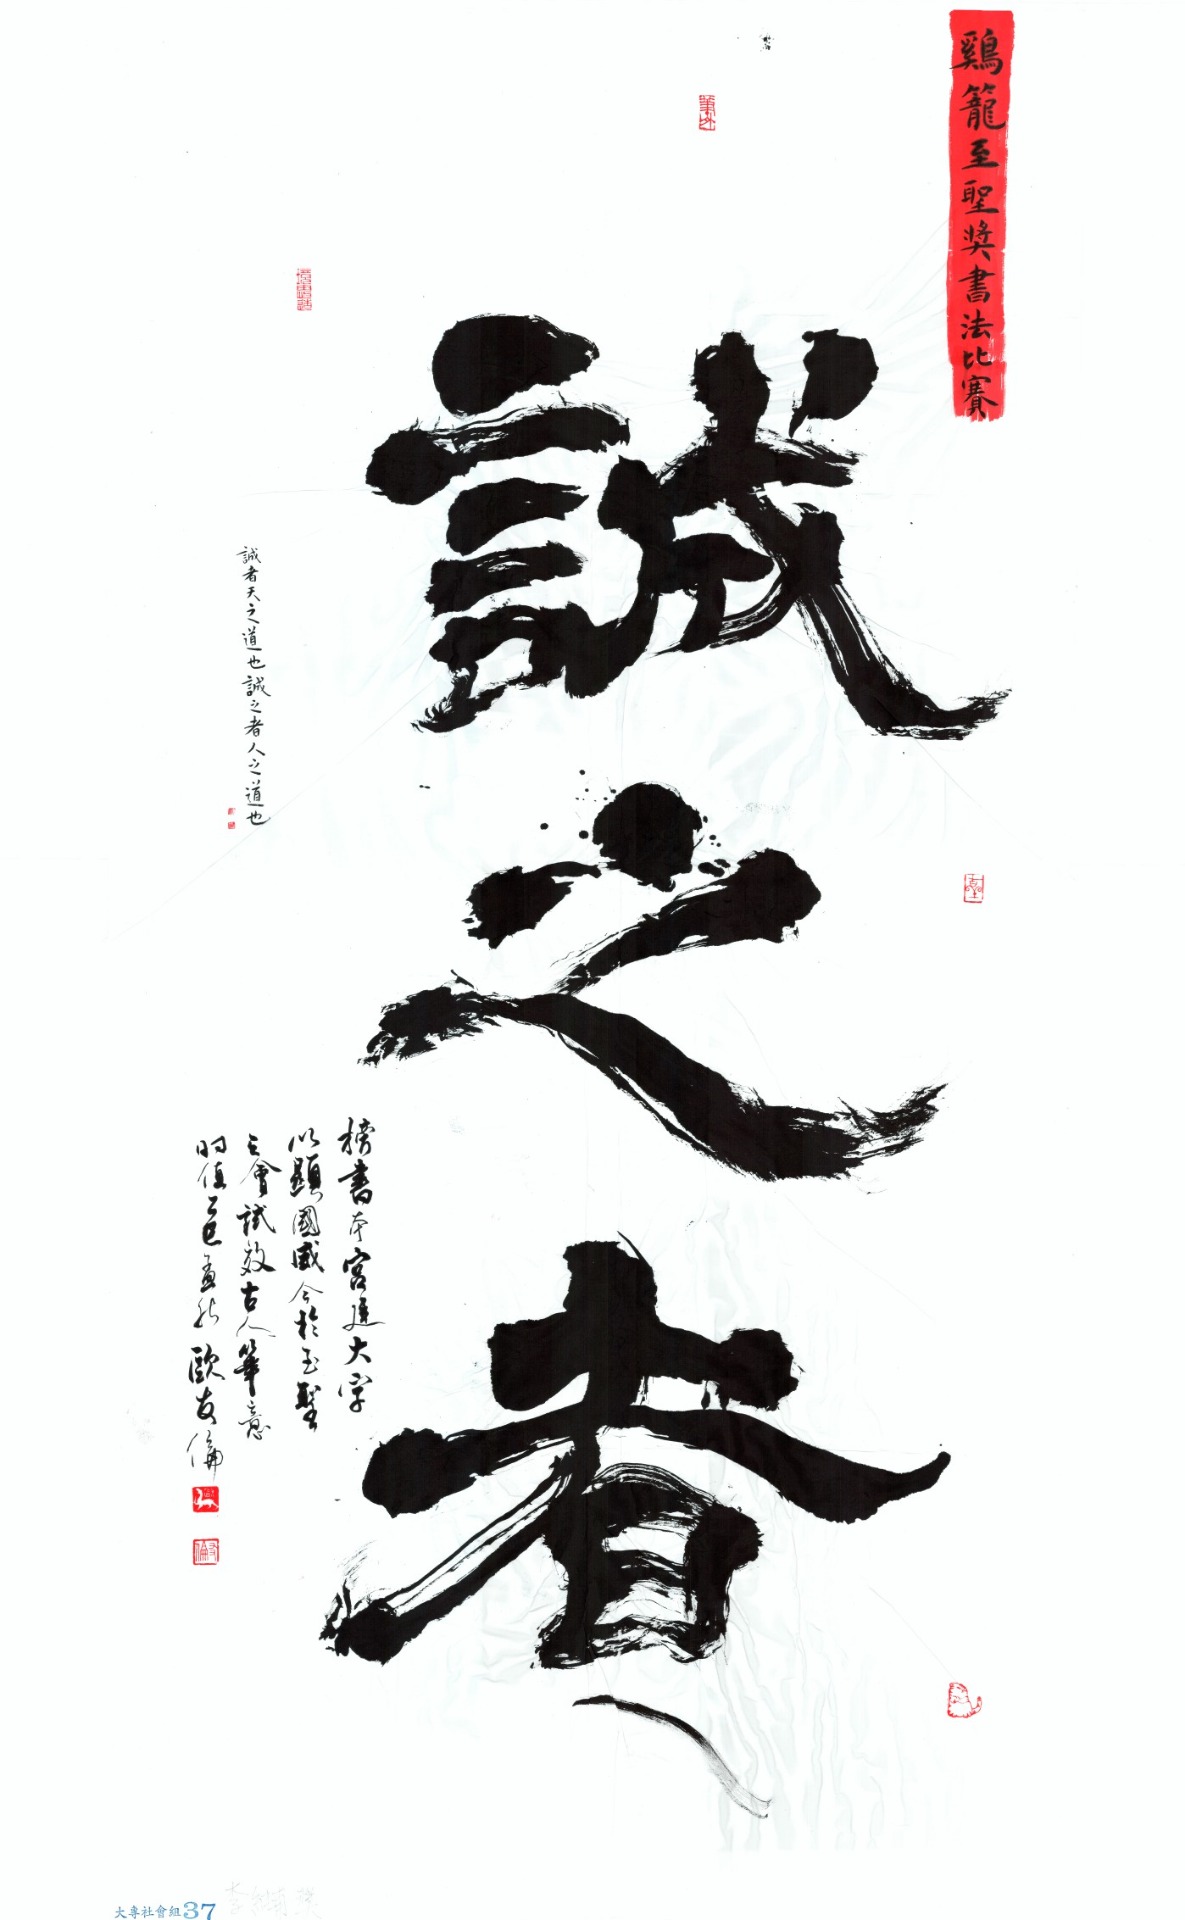 鷄籠至聖奬書法比賽
誠之者
誠者天之道也誠之者人之道也
榜書本宮廷大字
以顯國威今於至聖
之會試效古人筆意
時值乙巳孟秋歐友倫
大專社會組37